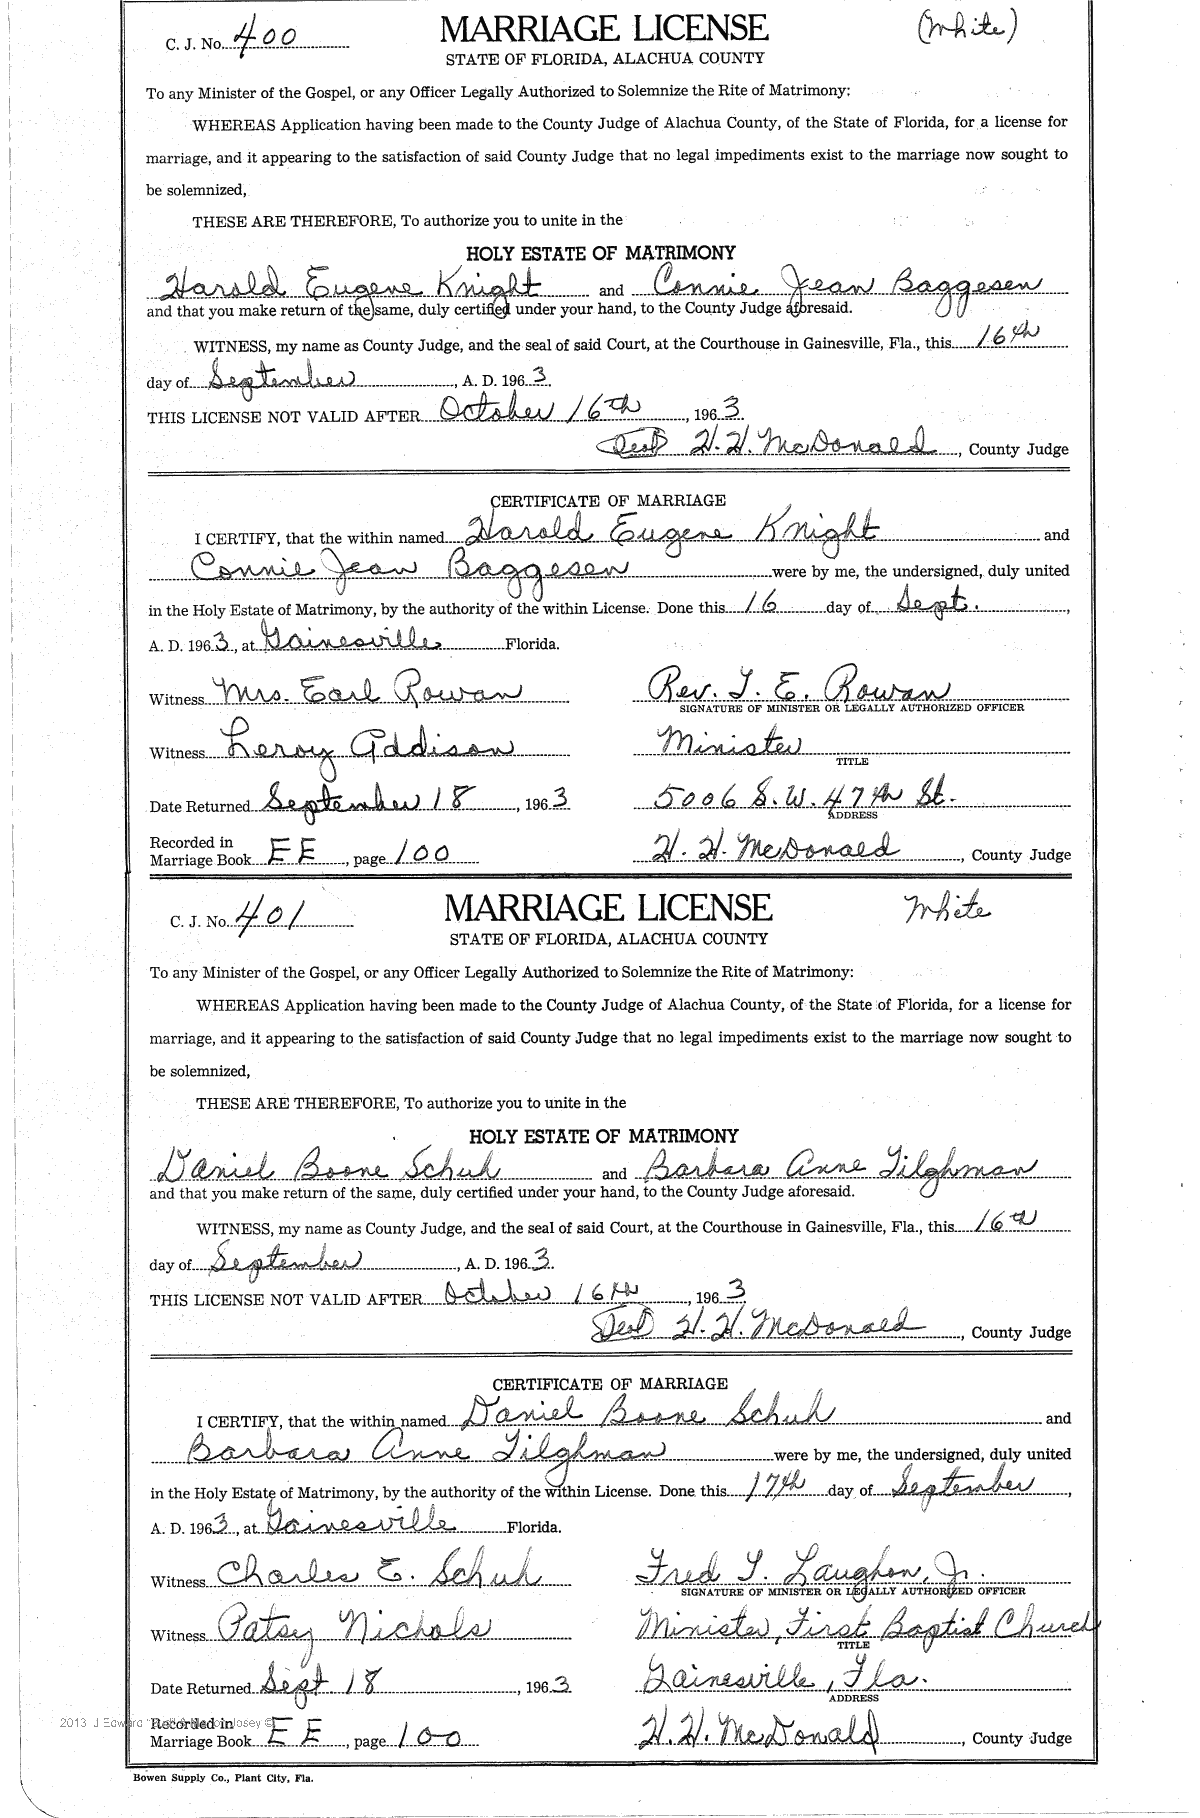 C. J. No. 400 MARRIAGE LICENSE (White)
STATE OF FLORIDA, ALACHUA COUNTY
To any Minister of the Gospel, or any Officer Legally Authorized to Solemnize the Rite of Matrimony:
WHEREAS Application having been made to the County Judge of Alachua County, of the State of Florida, for a license for
marriage, and it appearing to the satisfaction of said County Judge that no legal impediments exist to the marriage now sought to
be solemnized,
THESE ARE THEREFORE, To authorize you to unite in the
HOLY ESTATE OF MATRIMONY
Harold Eugene Knight and Connie Jean Baggesen
and that you make return of the same, duly certified under your hand, to the County Judge aforesaid.
WITNESS, my name as County Judge, and the seal of said Court, at the Courthouse in Gainesville, Fla., this 16th
day of September, A. D. 1963.
THIS LICENSE NOT VALID AFTER October 16th, 1963
(Seal) H. H. McDonald, County Judge
CERTIFICATE OF MARRIAGE
I CERTIFY, that the within named Harold Eugene Knight and
Connie Jean Baggesen were by me, the undersigned, duly united
in the Holy Estate of Matrimony, by the authority of the within License. Done this 16 day of Sept.,
A. D. 1963, at Gainesville Florida.
Witness Mrs. Earl Rowan Rev. T. E. Rowan
SIGNATURE OF MINISTER OR LEGALLY AUTHORIZED OFFICER
Witness Leroy Addison Minister
TITLE
Date Returned September 18, 1963 5006 S.W. 47th St.
ADDRESS
Recorded in
Marriage Book EE, page 100 H. H. McDonald, County Judge
C. J. No. 401 MARRIAGE LICENSE White
STATE OF FLORIDA, ALACHUA COUNTY
To any Minister of the Gospel, or any Officer Legally Authorized to Solemnize the Rite of Matrimony:
WHEREAS Application having been made to the County Judge of Alachua County, of the State of Florida, for a license for
marriage, and it appearing to the satisfaction of said County Judge that no legal impediments exist to the marriage now sought to
be solemnized,
THESE ARE THEREFORE, To authorize you to unite in the
HOLY ESTATE OF MATRIMONY
Daniel Boone Schuh and Barbara Anne Tilghman
and that you make return of the same, duly certified under your hand, to the County Judge aforesaid.
WITNESS, my name as County Judge, and the seal of said Court, at the Courthouse in Gainesville, Fla., this 16th
day of September, A. D. 1963.
THIS LICENSE NOT VALID AFTER October 16th, 1963
(Seal) H. H. McDonald, County Judge
CERTIFICATE OF MARRIAGE
I CERTIFY, that the within named Daniel Boone Schuh and
Barbara Anne Tilghman were by me, the undersigned, duly united
in the Holy Estate of Matrimony, by the authority of the within License. Done this 17th day of September,
A. D. 1963, at Gainesville Florida.
Witness Charles E. Schuh Fred T. Laughon, Jr.
SIGNATURE OF MINISTER OR LEGALLY AUTHORIZED OFFICER
Witness Patsy Nichols Minister, First Baptist Church
TITLE
Date Returned Sept 18, 1963 Gainesville, Fla.
ADDRESS
2013 J Edward Josey ©
Recorded in
Marriage Book EE, page 100 H. H. McDonald, County Judge
Bowen Supply Co., Plant City, Fla.